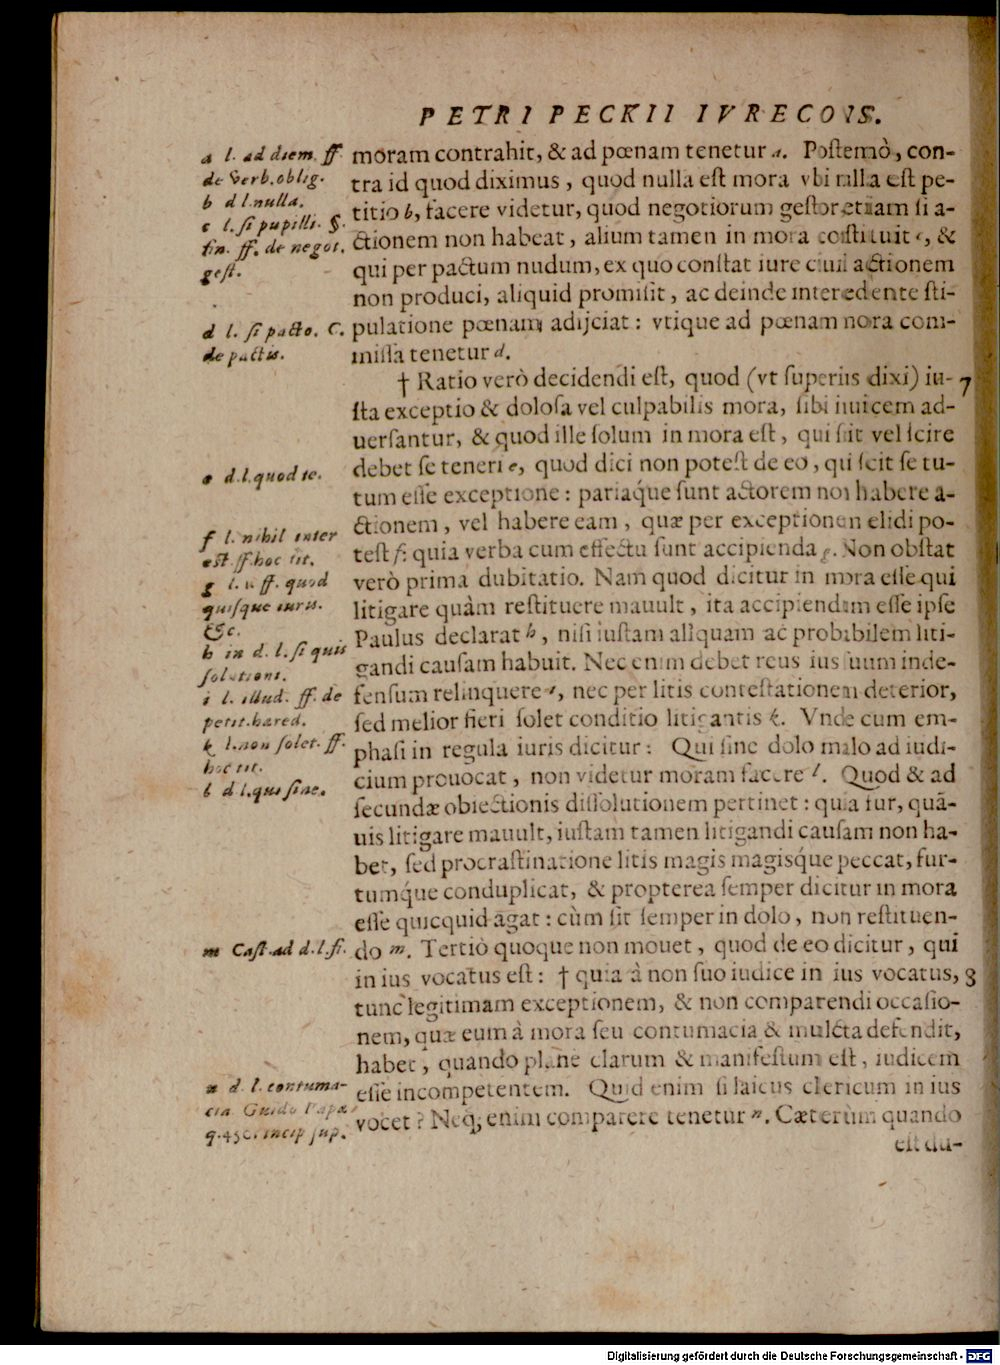 PETRI PECKII IVRECONS.
moram contrahit, & ad pœnam tenetur a. Postremò, con-
tra id quod diximus, quod nulla est mora vbi nulla est pe-
titio b, facere videtur, quod negotiorum gestor, etiam si a-
ctionem non habeat, alium tamen in mora constituit c, &
qui per pactum nudum, ex quo constat iure ciuili actionem
non produci, aliquid promisit, ac deinde intercedente sti-
pulatione pœnam adijciat: vtique ad pœnam mora com-
missa tenetur d.
† Ratio verò decidendi est, quod (vt superius dixi) iu- 7
sta exceptio & dolosa vel culpabilis mora, sibi inuicem ad-
uersantur, & quod ille solum in mora est, qui scit vel scire
debet se teneri e, quod dici non potest de eo, qui scit se tu-
tum esse exceptione: pariáque sunt actorem non habere a-
ctionem, vel habere eam, quæ per exceptionem elidi po-
test f: quia verba cum effectu sunt accipienda g. Non obstat
verò prima dubitatio. Nam quod dicitur in mora esse qui
litigare quàm restituere mauult, ita accipiendum esse ipse
Paulus declarat h, nisi iustam aliquam ac probabilem liti-
gandi causam habuit. Nec enim debet reus ius suum inde-
fensum relinquere i, nec per litis contestationem deterior,
sed melior fieri solet conditio litigantis k. Vnde cum em-
phasi in regula iuris dicitur: Qui sine dolo malo ad iudi-
cium prouocat, non videtur moram facere l. Quod & ad
secundæ obiectionis dissolutionem pertinet: quia fur, quã-
uis litigare mauult, iustam tamen litigandi causam non ha-
bet, sed procrastinatione litis magis magisq́ue peccat, fur-
tumq́ue conduplicat, & propterea semper dicitur in mora
esse quicquid agat: cùm sit semper in dolo, non restituen-
do m. Tertiò quoque non mouet, quod de eo dicitur, qui
in ius vocatus est: † quia à non suo iudice in ius vocatus, 8
tunc legitimam exceptionem, & non comparendi occasio-
nem, quæ eum à mora seu contumacia & mulcta defendit,
habet, quando planè clarum & manifestum est, iudicem
esse incompetentem. Quid enim si laicus clericum in ius
vocet? Neq; enim comparere tenetur n. Cæterùm quando
est du-
a l. ad diem. ff
de Verb. oblig.
b d l. nulla.
c l. si pupilli. §.
fin. ff. de negot.
gest.
d l. si pacto. C.
de pactis.
e d. l. quod te.
f l. nihil inter
est. ff. hoc tit.
g l. 1. ff. quod
quisque iuris.
&c.
h in d. l. si quis
solutioni.
i l. illud. ff. de
petit. hæred.
k l. non solet. ff.
hoc tit.
l d l. qui sine.
m Cast. ad d. l. si.
n d. l. contuma-
cia. Guido Papæ
q. 450. incip sup.
Digitalisierung gefördert durch die Deutsche Forschungsgemeinschaft - DFG